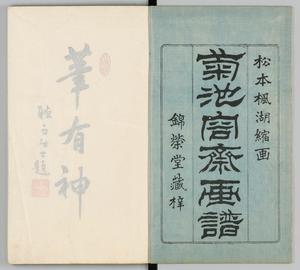 松本楓湖縮画
菊池容斎画譜
錦榮堂藏梓
筆有神